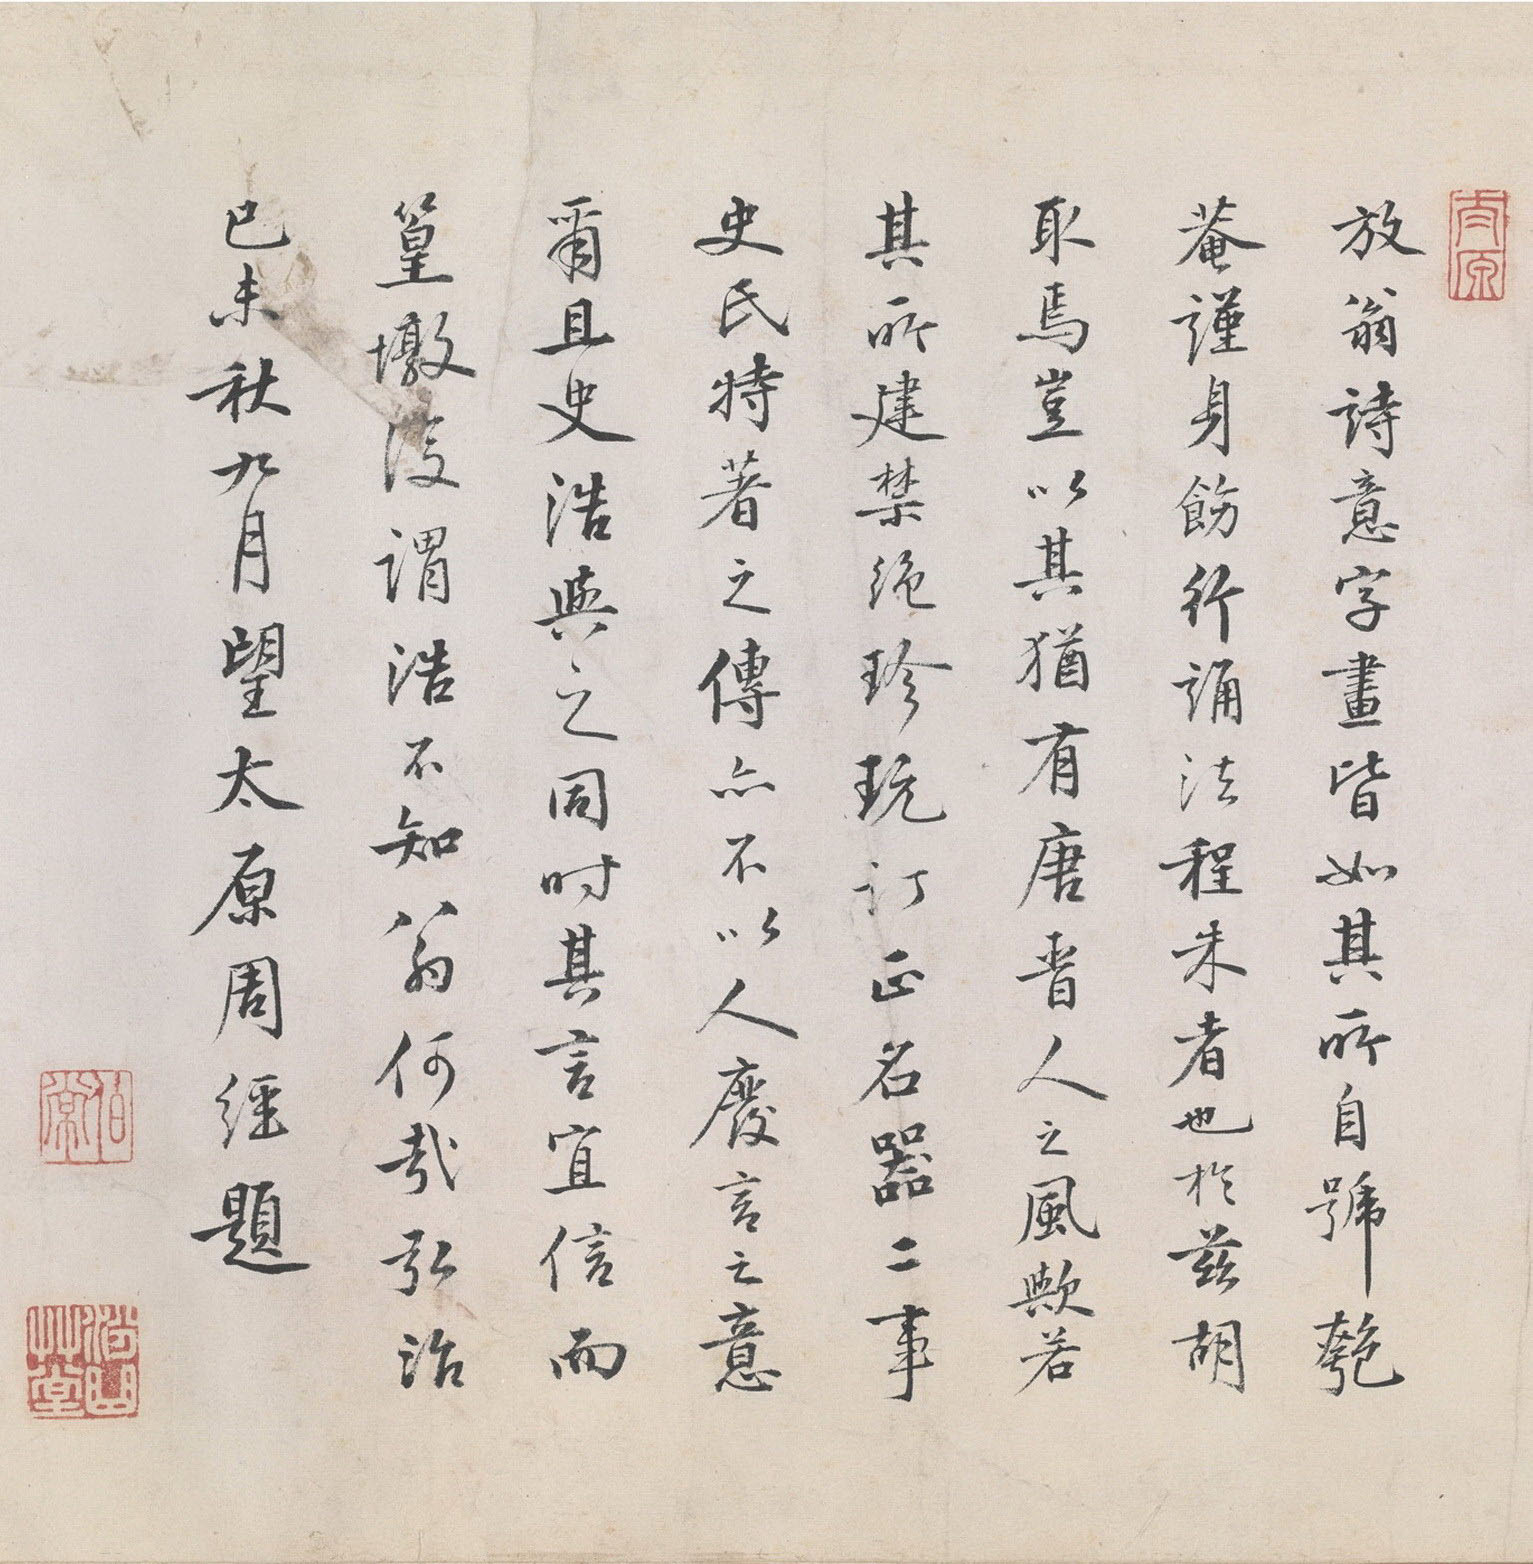 太原
放翁詩意字畫皆如其所自號匏
菴謹身飭行誦法程朱者也於茲胡
取焉豈以其猶有唐晉人之風歟若
其所建禁絕珍玩訂正名器二事
史氏特著之傳亦不以人廢言之意
爾且史浩與之同时其言宜信而
篁墩復謂浩不知翁何哉弘治
己未秋九月望太原周經題
伯常